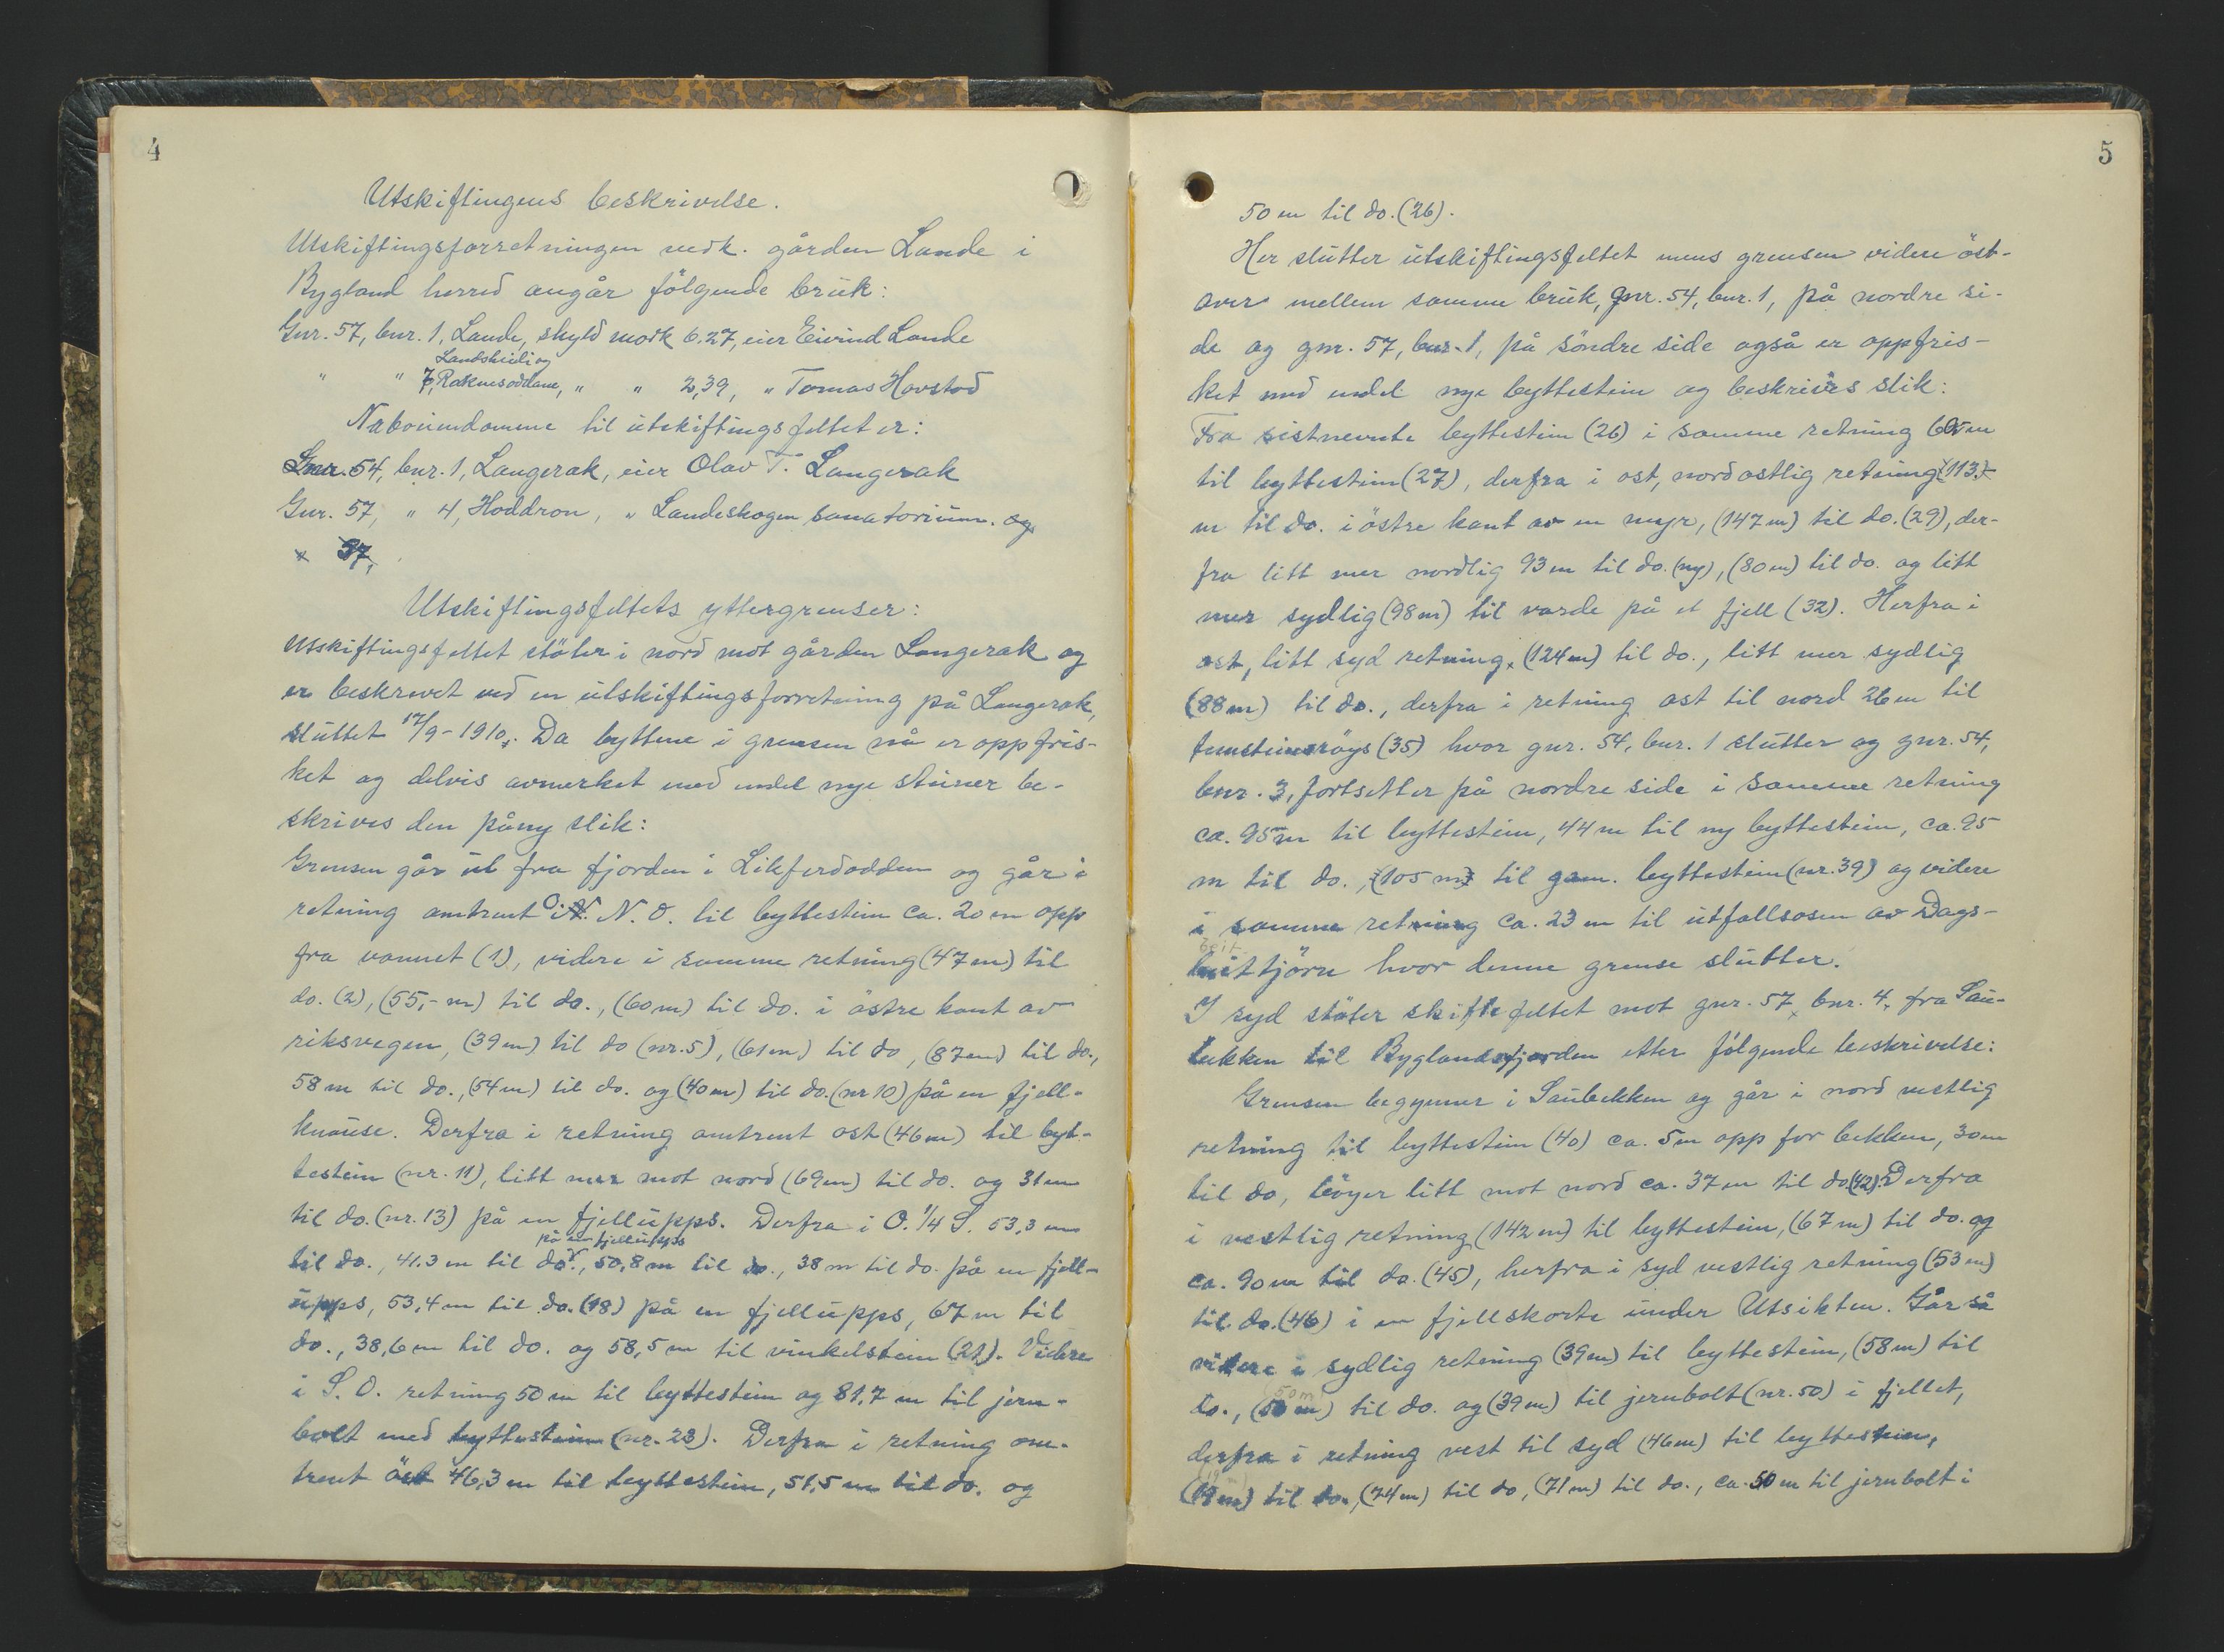 4
Utskiftingens beskrivelse.
Utskiftingsforretningen vedk. gården Lande i
Bygland herred angår fölgende bruk:
Gnr. 57, bnr. 1, Lande, skyld mark 6.27, eier Eivind Lande
Landskeidi og
" " 7, Raknesoddane, " " 2,39, " Tomas Havstad
Naboeiendomme til utskiftingsfeltet er:
Gnr. 54, bnr. 1, Langerak, eier Olav T. Langerak
Gnr. 57, " 4, Hoddron, " Landeskogen sanatorium. og
" 57,
Utskiftingsfeltets yttergrenser:
Utskiftingsfeltet stöter i nord mot gården Langerak og
er beskrevet ved en utskiftingsforretning på Langerak,
sluttet 17/9-1910. Da byttene i grensen nå er oppfris-
ket og delvis avmerket med endel nye steiner be-
skrives den påny slik:
Grensen går ut fra fjorden i Likferdodden og går i
retning omtrent O. N. N. O. til byttestein ca. 20 m opp
fra vannet (1), videre i samme retning (47 m) til
do. (2), (55,- m) til do., (60 m) til do. i östre kant av
riksvegen, (39 m) til do (nr. 5), (61 m) til do, (87 m) til do.,
58 m til do., (54 m) til do. og (40 m) til do. (nr 10) på en fjell-
knause. Derfra i retning omtrent ost (46 m) til byt-
testein (nr. 11), litt mer mot nord (69 m) til do. og 31 m
til do. (nr. 13) på en fjellupps. Derfra i O. 1/4 S. 53,3 m
på en fjellupps
til do., 41.3 m til do., 50,8 m til do., 38 m til do. på en fjell-
upps, 53,4 m til do. (18) på en fjellupps, 67 m til
do., 38,6 m til do. og 58,5 m til vinkelstein (21). Videre
i S. O. retning 50 m til byttestein og 81,7 m til jern-
bolt med byttestein (nr. 23). Derfra i retning om-
trent öst 46,3 m til byttestein, 51,5 m til do. og
5
50 m til do. (26).
Her slutter utskiftingsfeltet mens grensen videre öst-
over mellem samme bruk, gnr. 54, bnr. 1, på nordre si-
de og gnr. 57, bnr. 1, på söndre side også er oppfris-
ket med endel nye byttestein og beskrives slik:
Fra sistnevnte byttestein (26) i samme retning 60 m
til byttestein (27), derfra i ost, nordostlig retning (113.-
m til do. i östre kant av en myr, (147 m) til do. (29), der-
fra litt mer nordlig 93 m til do. (ny), (80 m) til do. og litt
mer sydlig (98 m) til varde på et fjell (32). Herfra i
ost, litt syd retning, (124 m) til do., litt mer sydlig
(88 m) til do., derfra i retning ost til nord 26 m til
femsteinsröys (35) hvor gnr. 54, bnr. 1 slutter og gnr. 54,
bnr. 3, fortsetter på nordre side i samme retning
ca. 95 m til byttestein, 44 m til ny byttestein, ca. 95
m til do., (105 m) til gam. byttestein (nr. 39) og videre
i samme retning ca. 23 m til utfallsosen av Dags-
beit
beittjörn hvor denne grense slutter.
I syd stöter skiftefeltet mot gnr. 57, bnr. 4, fra Sau-
bekken til Byglandsfjorden etter fölgende beskrivelse:
Grensen begynner i Saubekken og går i nord vestlig
retning til byttestein (40) ca. 5 m opp for bekken, 30 m
til do, böyer litt mot nord ca. 37 m til do. (42). Derfra
i vestlig retning (142 m) til byttestein, (67 m) til do. og
ca. 90 m til do. (45), herfra i syd vestlig retning (53 m)
til do. (46) i en fjellskorte under Utsikten. Går så
videre i sydlig retning (39 m) til byttestein, (58 m) til
(50 m)
do., (50 m) til do. og (39 m) til jernbolt (nr. 50) i fjellet,
derfra i retning vest til syd (46 m) til byttestein,
(19 m)
(19 m) til do., (74 m) til do, (71 m) til do., ca. 50 m til jernbolt i